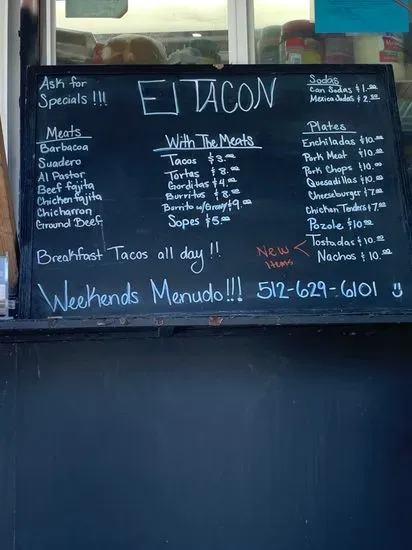 Ask for
Specials !!!
El TACON
Sodas
Can Sodas $1.00
Mexico Sodas $2.00
Meats
Barbacoa
Suadero
Al Pastor
Beef fajita
Chicken fajita
Chicharron
Ground Beef
With The Meats
Tacos $3.00
Tortas $8.00
Gorditas $4.00
Burritos $8.00
Borrito w/Gravy $9.00
Sopes $5.00
Plates
Enchiladas $10.00
Pork Meat $10.00
Pork Chops $10.00
Quesadillas $10.00
Cheeseburger $7.00
Chicken Tenders $7.00
Pozole $10.00
New
Items
Tostadas $10.00
Nachos $10.00
Breakfast Tacos all day!!
Weekends Menudo!!! 512-629-6101